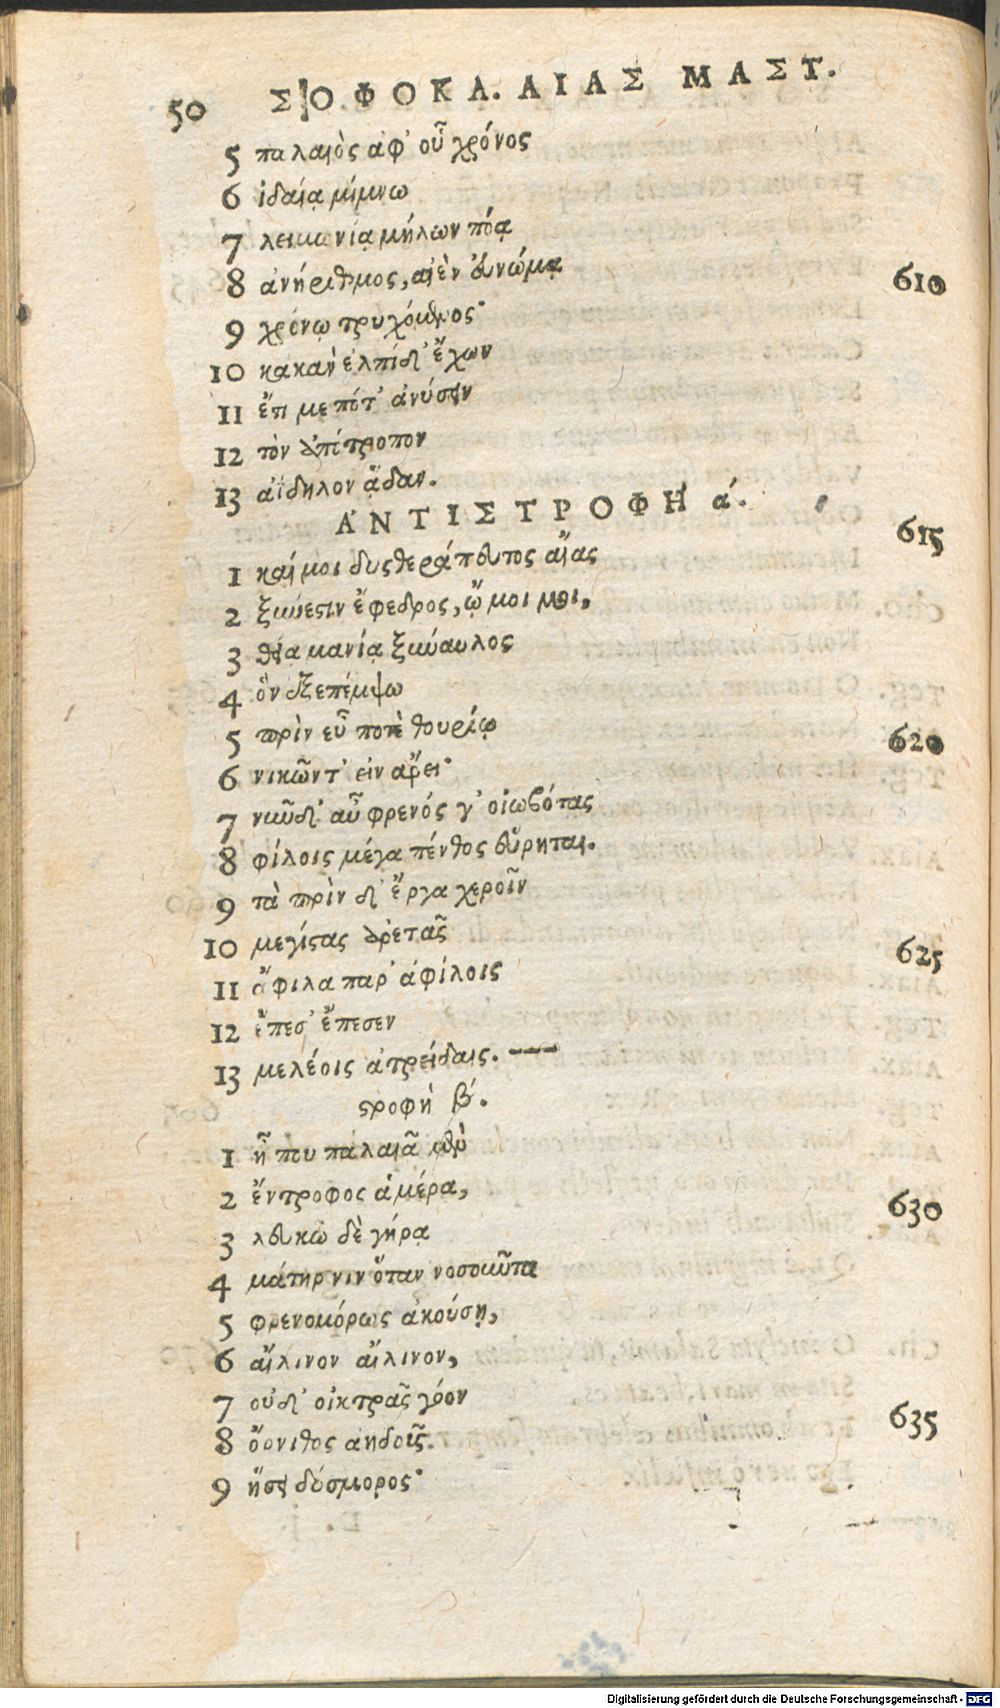 50 ΣΟΦΟΚΛ. ΑΙΑΣ ΜΑΣΤ.
5 παλαιὸς ἀφ' οὗ χρόνος
6 ἰδαίᾳ μίμνω
7 λειμωνίᾳ μήλων πόᾳ
8 ἀνήριθμος, αἰὲν εὐνώμᾳ 610
9 χρόνῳ τρυχόμενος·
10 κακὰν ἐλπίδ' ἔχων
11 ἔτι με πότ' ἀνύσειν
12 τὸν ἀπότροπον
13 ἀΐδηλον ᾅδαν.
ἈΝΤΙΣΤΡΟΦΉ ά. 615
1 καί μοι δυσθεράπευτος αἴας
2 ξύνεστιν ἔφεδρος, ᾤ μοι μοι,
3 θείᾳ μανίᾳ ξύναυλος
4 ὃν ἐξεπέμψω
5 πρὶν εὖ ποτὲ θουρίῳ 620
6 νικῶντ' εἰν ἄρει·
7 νῦν δ' αὖ φρενός γ' οἰωβότας
8 φίλοις μέγα πένθος εὕρηται.
9 τὰ πρὶν δ' ἔργα χεροῖν
10 μεγίστας ἀρετᾶς 625
11 ἄφιλα παρ' ἀφίλοις
12 ἔπεσ' ἔπεσεν
13 μελέοις ἀτρείδαις. ---
στροφὴ β́.
1 ἦ που παλαιᾷ μὲν
2 ἔντροφος ἁμέρᾳ, 630
3 λευκῷ δὲ γήρᾳ
4 μάτηρ νιν ὅταν νοσοῦντα
5 φρενομόρως ἀκούσῃ,
6 αἴλινον αἴλινον,
7 οὐδ' οἰκτρᾶς γόον 635
8 ὄρνιθος ἀηδοῦς.
9 ἥσει δύσμορος·
Digitalisierung gefördert durch die Deutsche Forschungsgemeinschaft - DFG